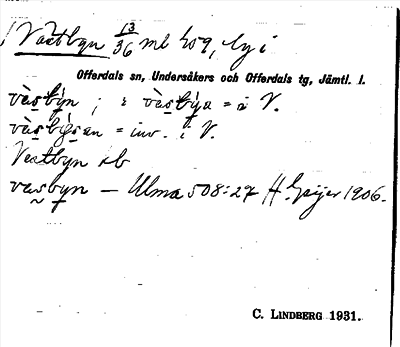 Västbyn 13/36 ml 209, by i
Offerdals sn, Undersåkers och Offerdals tg, Jämtl. l.
väsby̆n ; i väsbÿa = i V.
väsbÿsan = inv. i V.
Vestbyn kb
vasbyn — Ulma 508:27 H. Geijer 1906.
C. LINDBERG 1931.